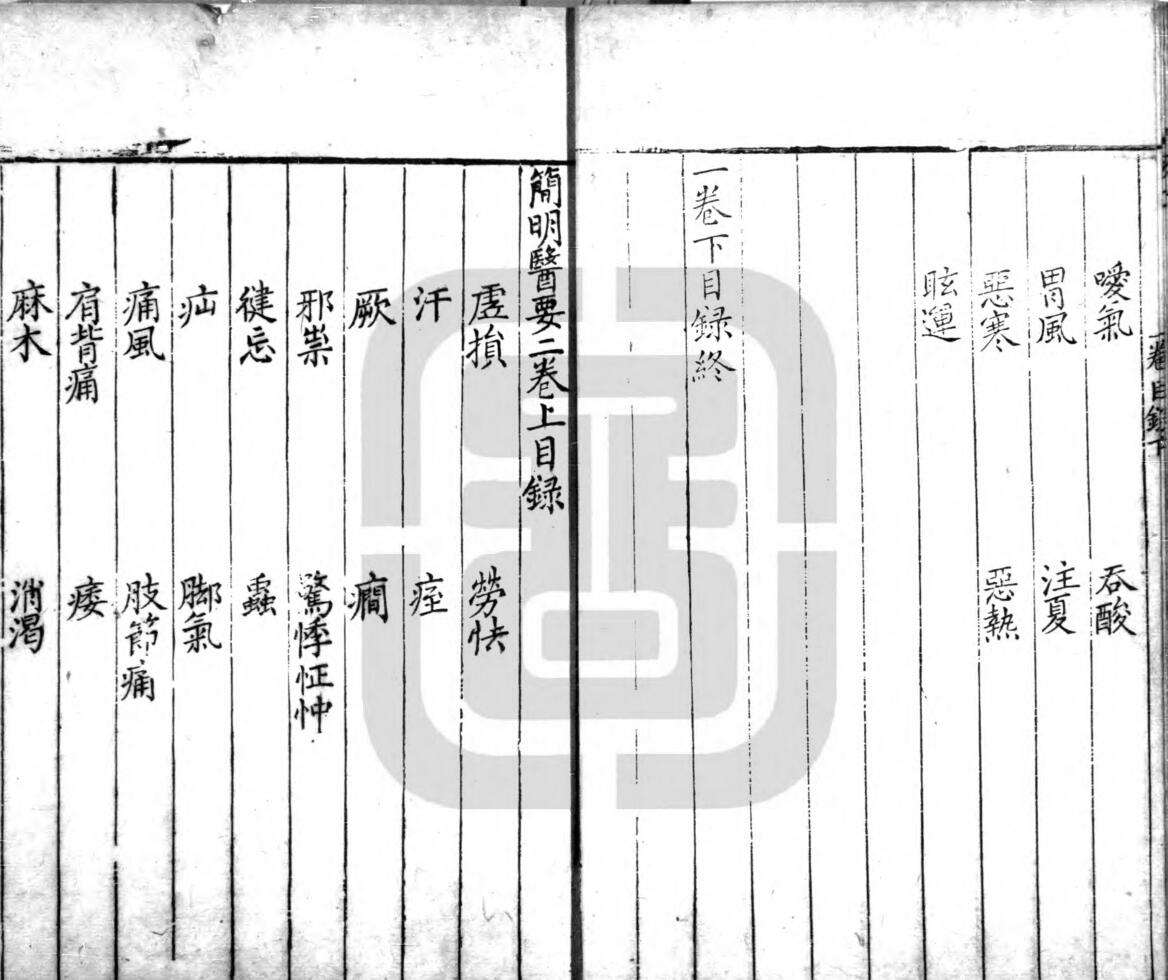 一卷目録下
噯氣 吞酸
胃風 注夏
惡寒 惡熱
眩運
一卷下目録終
簡明醫要二卷上目録
虛損 勞怯
汗 痓
厥 癇
邪祟 驚悸怔忡
健忘 蟲
疝 脚氣
痛風 肢節痛
肩背痛 痿
麻木 消渴